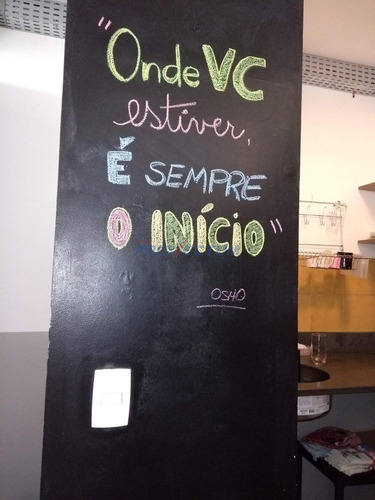 "Onde VC
estiver,
É SEMPRE
O INÍCIO"
OSHO